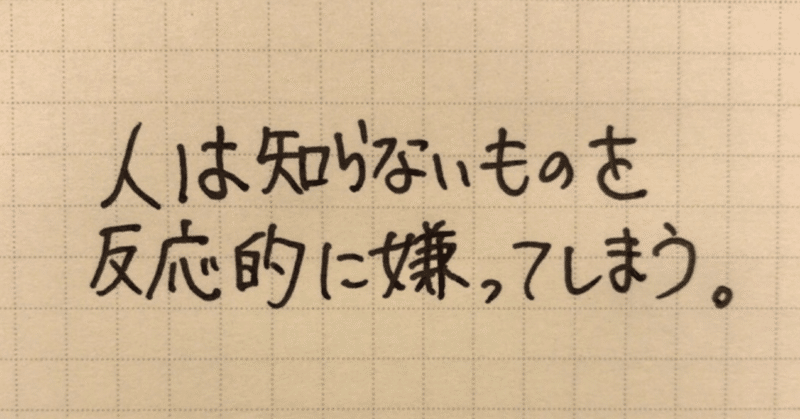 人は知らないものを
反応的に嫌ってしまう。